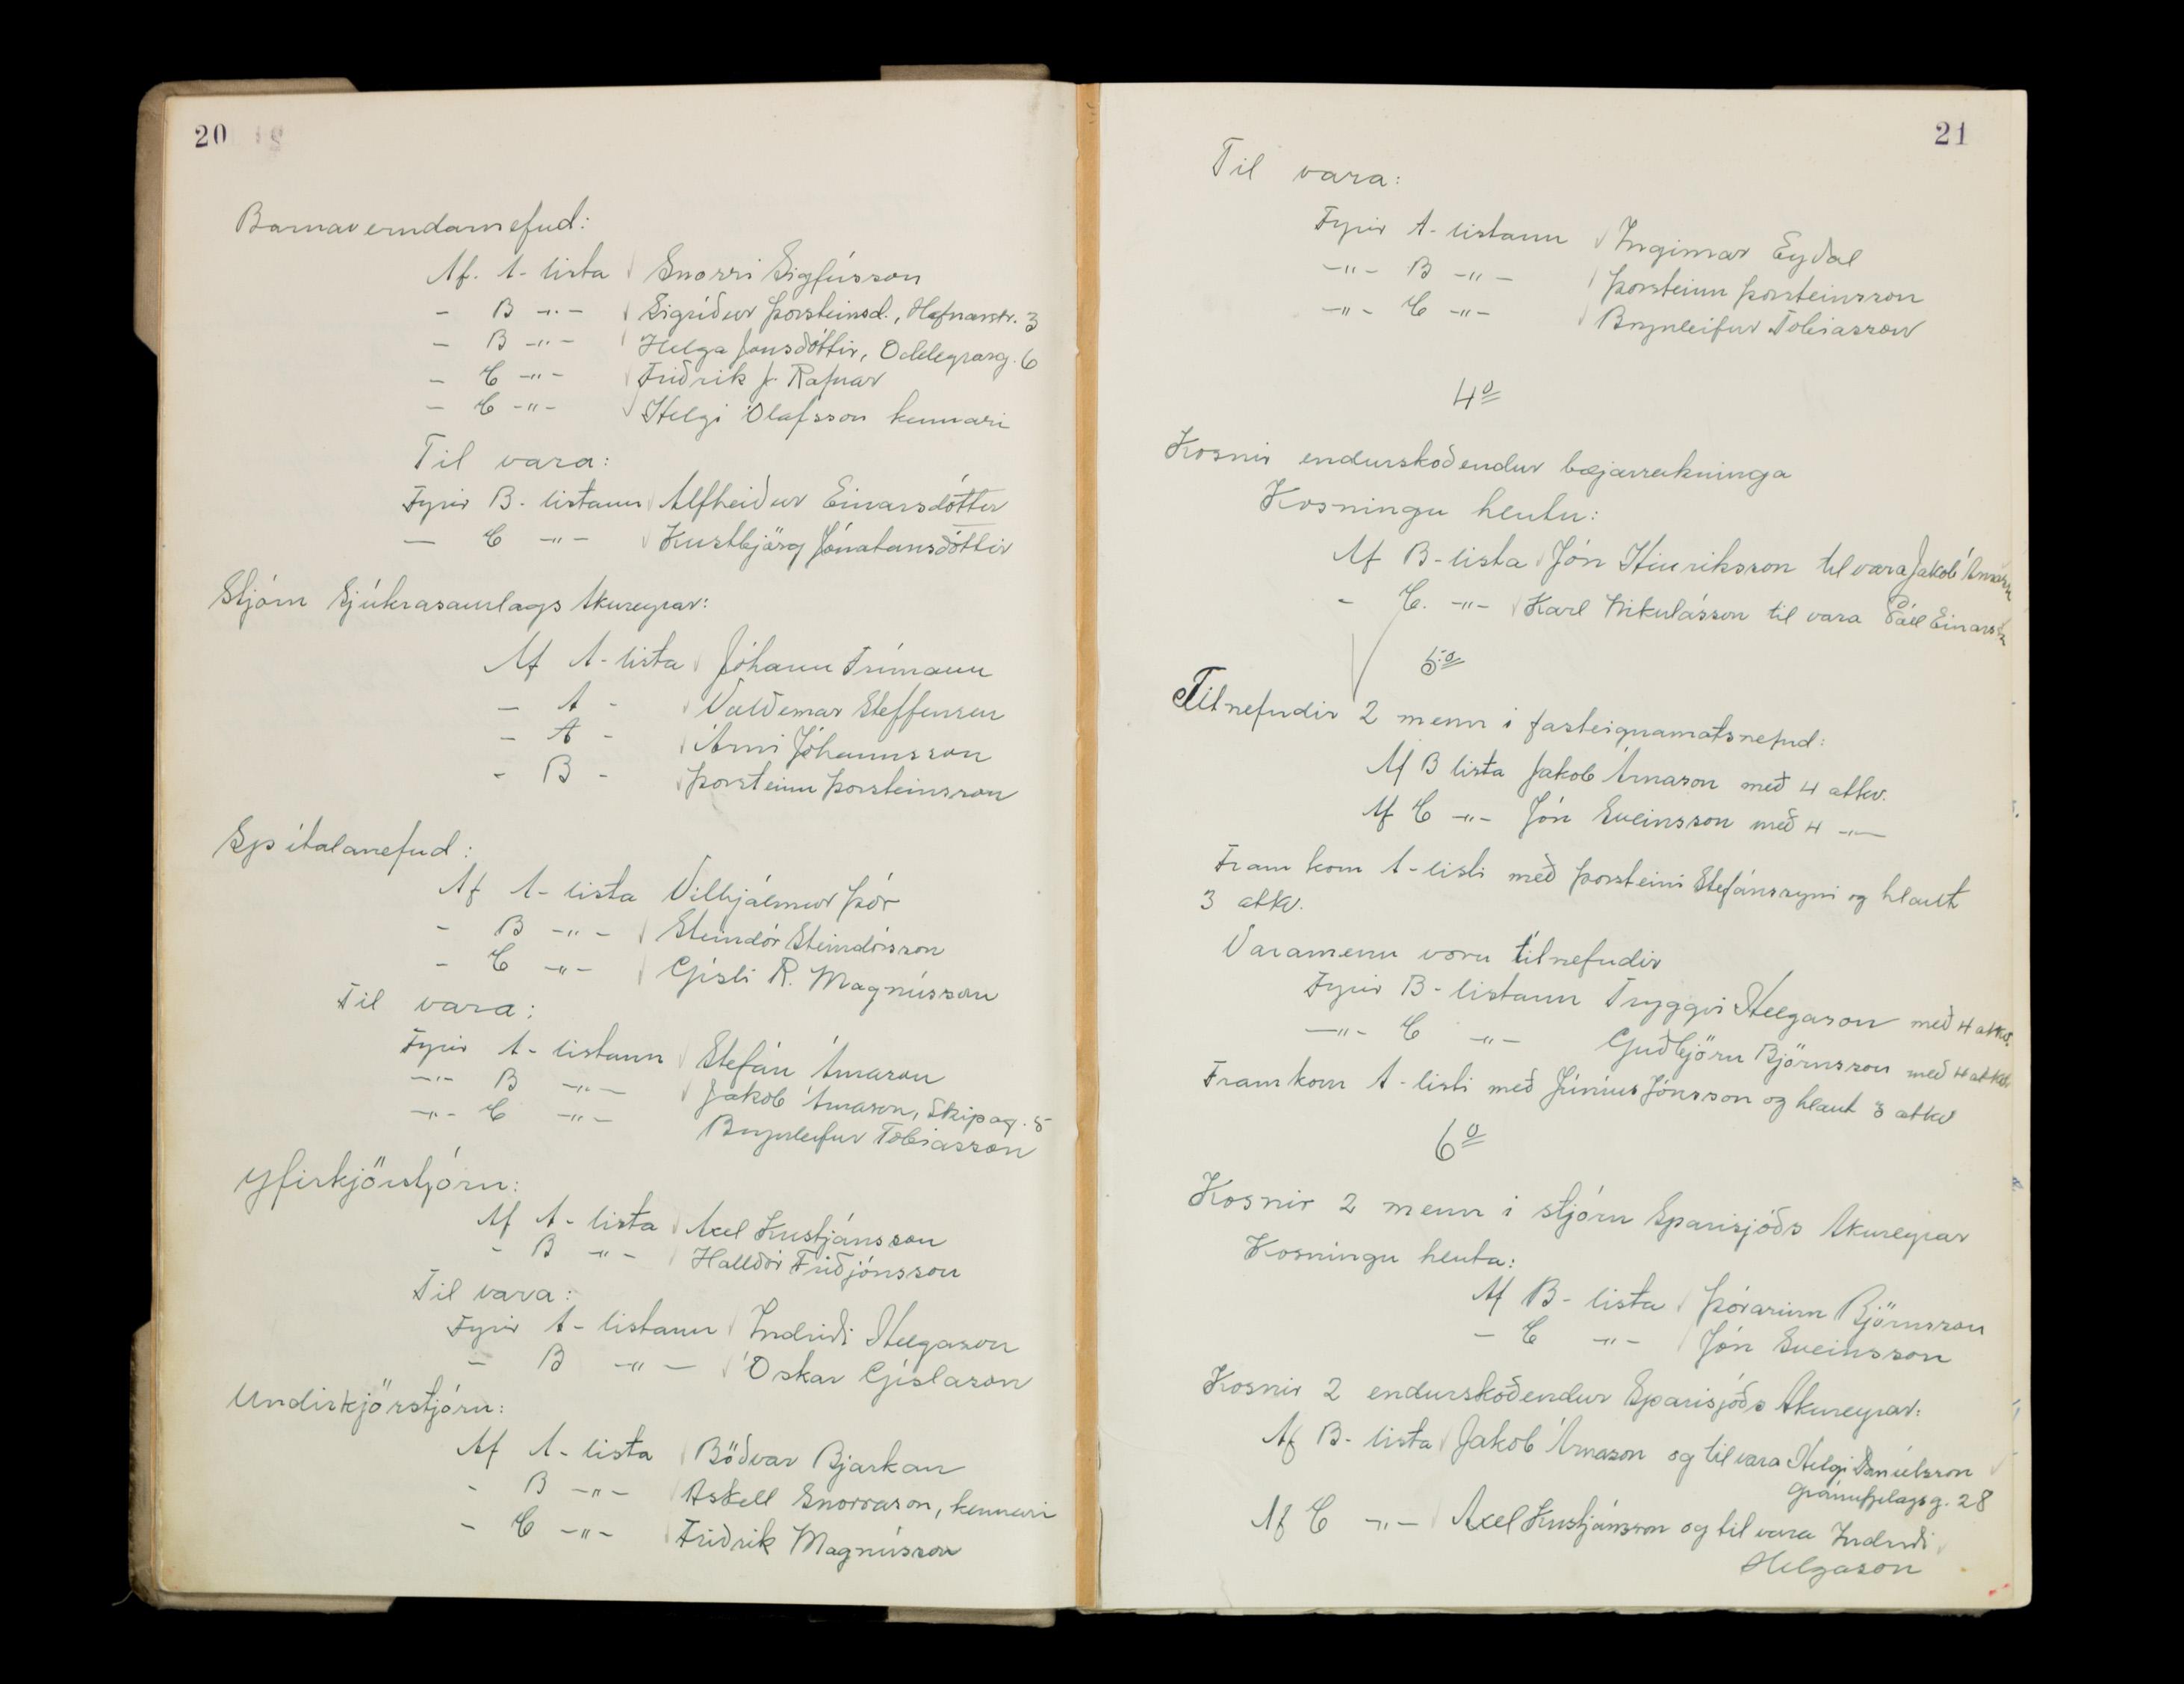 20
Barnaverndarnefnd:
Af. A-lista Snorri Sigfússon
- B -"- Sigríður Þorsteinsd., Hafnarstr. 3
- B -"- Helga Jónsdóttir, Oddeyrarg. 6
- C -"- Friðrik J. Rafnar
- C -"- Helgi Ólafsson kennari
Til vara:
Fyrir B-listann Álfheiður Einarsdóttir
— C -"- Kristbjörg Jónatansdóttir
Stjórn Sjúkrasamlags Akureyrar:
Af A-lista Jóhann Frímann
- A - Valdemar Steffensen
- A - Árni Jóhannsson
- B - Þorsteinn Þorsteinsson
Spítalanefnd:
Af A-lista Vilhjálmur Þór
- B -"- Steindór Steindórsson
- C -"- Gísli R. Magnússon
Til vara:
Fyrir A-listann Stefán Árnason
-"- B -"- Jakob Árnason, Skipag. 5
-"- C -"- Brynleifur Tobiasson
Yfirkjörstjórn:
Af A-lista Axel Kristjánsson
- B -"- Halldór Friðjónsson
Til vara:
Fyrir A-listann Indriði Helgason
- B -"- Óskar Gíslason
Undirkjörstjórn:
Af A-lista Böðvar Bjarkan
- B -"- Áskell Snorrason, kennari
- C -"- Friðrik Magnússon
21
Til vara:
Fyrir A-listann Ingimar Eydal
-"- B -"- Þorsteinn Þorsteinsson
-"- C -"- Brynleifur Tobiasson
4º
Kosnir endurskoðendur bæjarreikninga
Kosningu hlutu:
Af B-lista Jón Hinriksson til vara Jakob Árnason
- C. -"- Karl Nikulásson til vara Páll Einarsson
5º
Tilnefndir 2 menn í fasteignamatsnefnd:
Af B lista Jakob Árnason með 4 atkv.
Af C -"- Jón Sveinsson með 4 -"-
Fram kom A-listi með Þorsteini Stefánssyni og hlaut
3 atkv.
Varamenn voru tilnefndir
Fyrir B-listann Tryggvi Helgason með 4 atkv.
-"- C -"- Guðbjörn Björnsson með 4 atkv.
Fram kom A-listi með Júníus Jónsson og hlaut 3 atkv
6º
Kosnir 2 menn í stjórn Sparisjóðs Akureyrar
Kosningu hlutu:
Af B-lista Þórarinn Björnsson
- C -"- Jón Sveinsson
Kosnir 2 endurskoðendur Sparisjóðs Akureyrar:
Af B-lista Jakob Árnason og til vara Helgi Daníelsson
Gránufjelagsg. 28
Af C -"- Axel Kristjánsson og til vara Indriði
Helgason